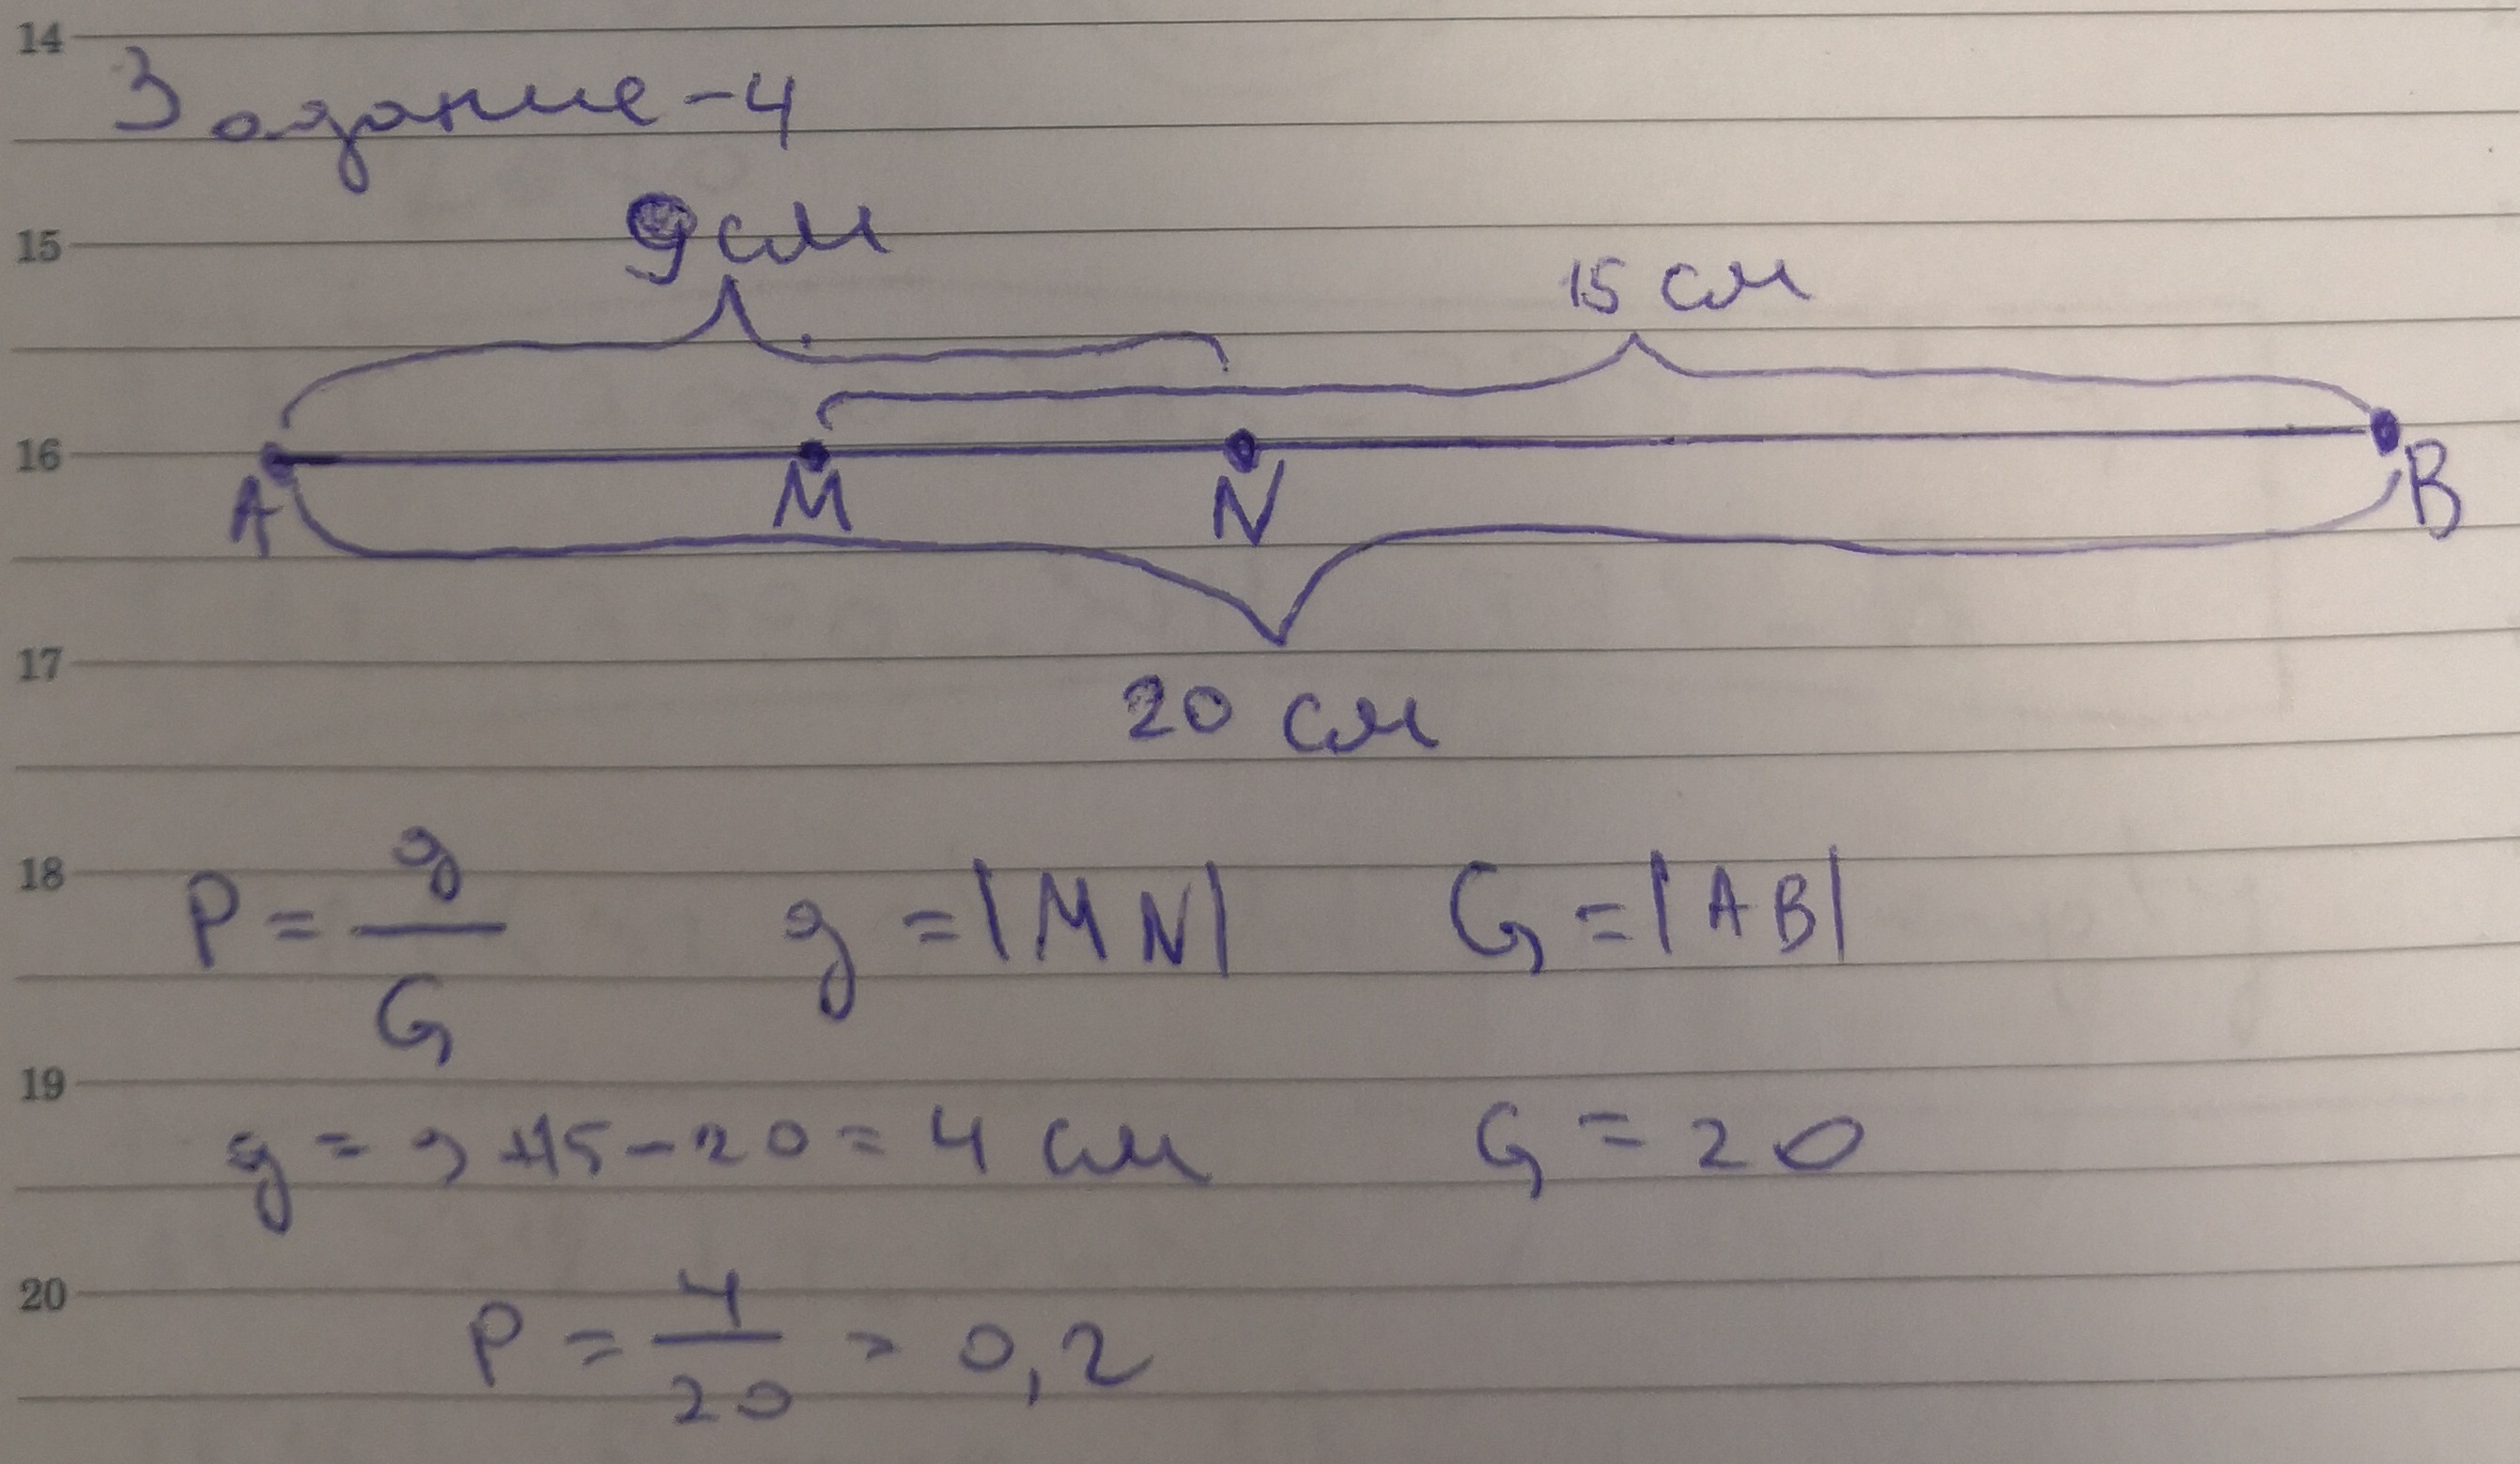 14
Задание-4
9 см
15
15 см
16
A M N B
17
20 см
18
P = g/G g = |MN| G = |AB|
19
g = 9+15-20 = 4 см G = 20
20
P = 4/20 = 0,2